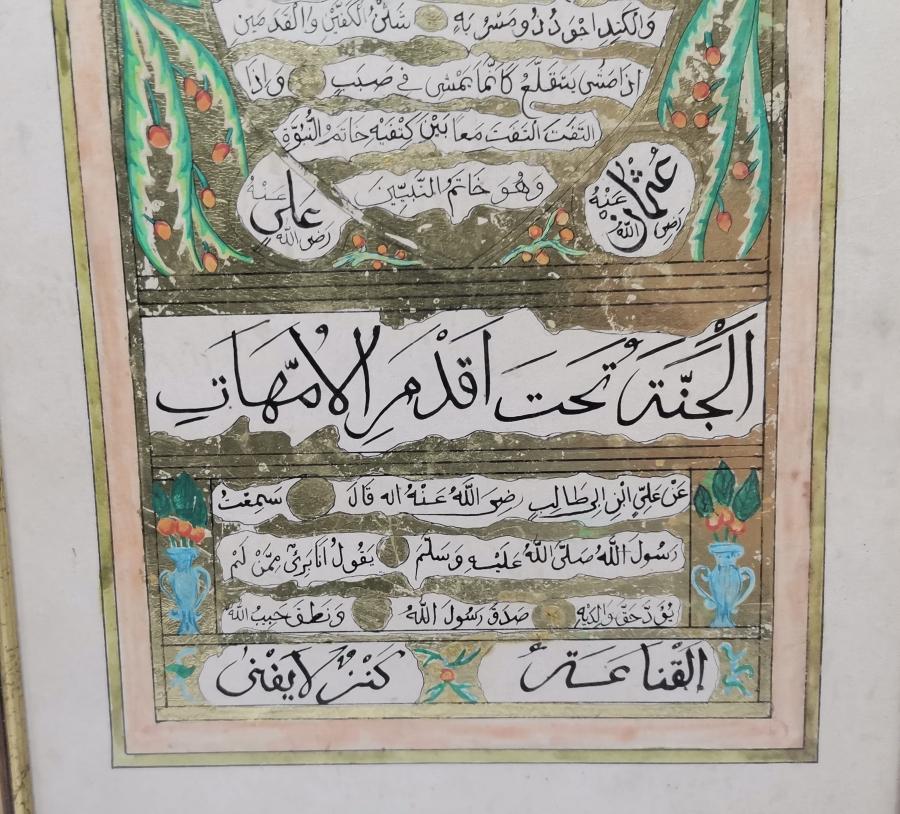 والكبد اجود ذو مسربة شثن الكفين والقدمين
اذا مشى يتقلع كانما يمشى في صبب واذا
التفت التفت معا بين كتفيه خاتم النبوة
وهو خاتم النبيين
عثمان رضى الله عنه
على رضى الله عنه
الجَنّة تحت اقدم الامّهات
عن على ابن ابى طالب رضى الله عنه انه قال سمعت
رسول الله صلى الله عليه وسلم يقول انا برئ ممن لم
يؤدّ حق والديه صدق رسول الله ونطق حبيب الله
القناعة كنز لا يفنى